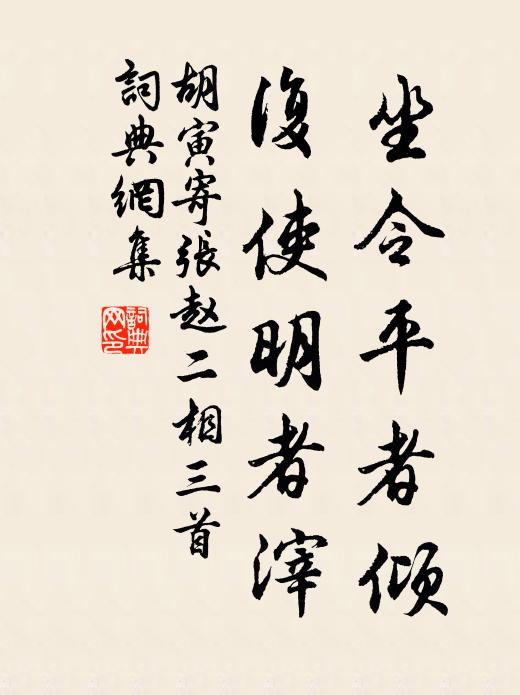 坐令平者傾
復使明者滓
胡寅寄張赵二相三首
詞典網集
詞典网印